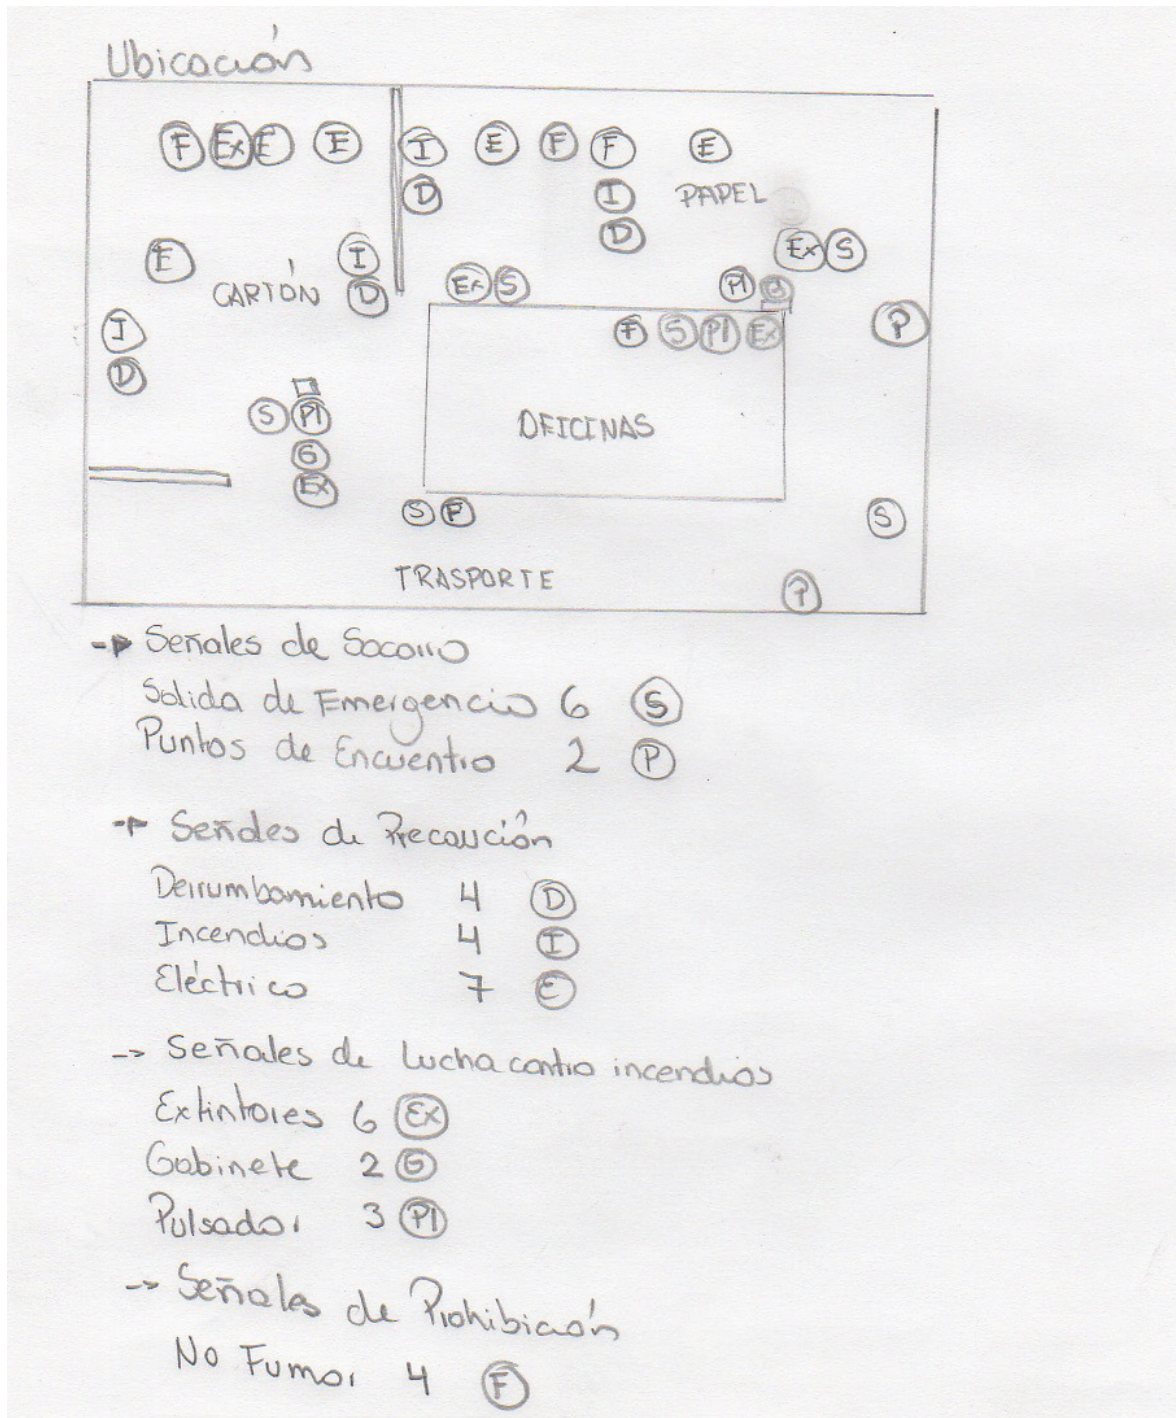 Ubicación
F Ex E E I E F F E
D I PAPEL
D
E I Ex S
CARTÓN D Ex S PI G
I F S PI Ex P
D
S PI OFICINAS
G
Ex
S F S
TRASPORTE P
-> Señales de Socorro
Salida de Emergencia 6 S
Puntos de Encuentro 2 P
-> Señales de Precaución
Derrumbamiento 4 D
Incendios 4 I
Eléctrico 7 E
-> Señales de Lucha contra incendios
Extintores 6 Ex
Gabinete 2 G
Pulsador 3 PI
-> Señales de Prohibición
No Fumar 4 F